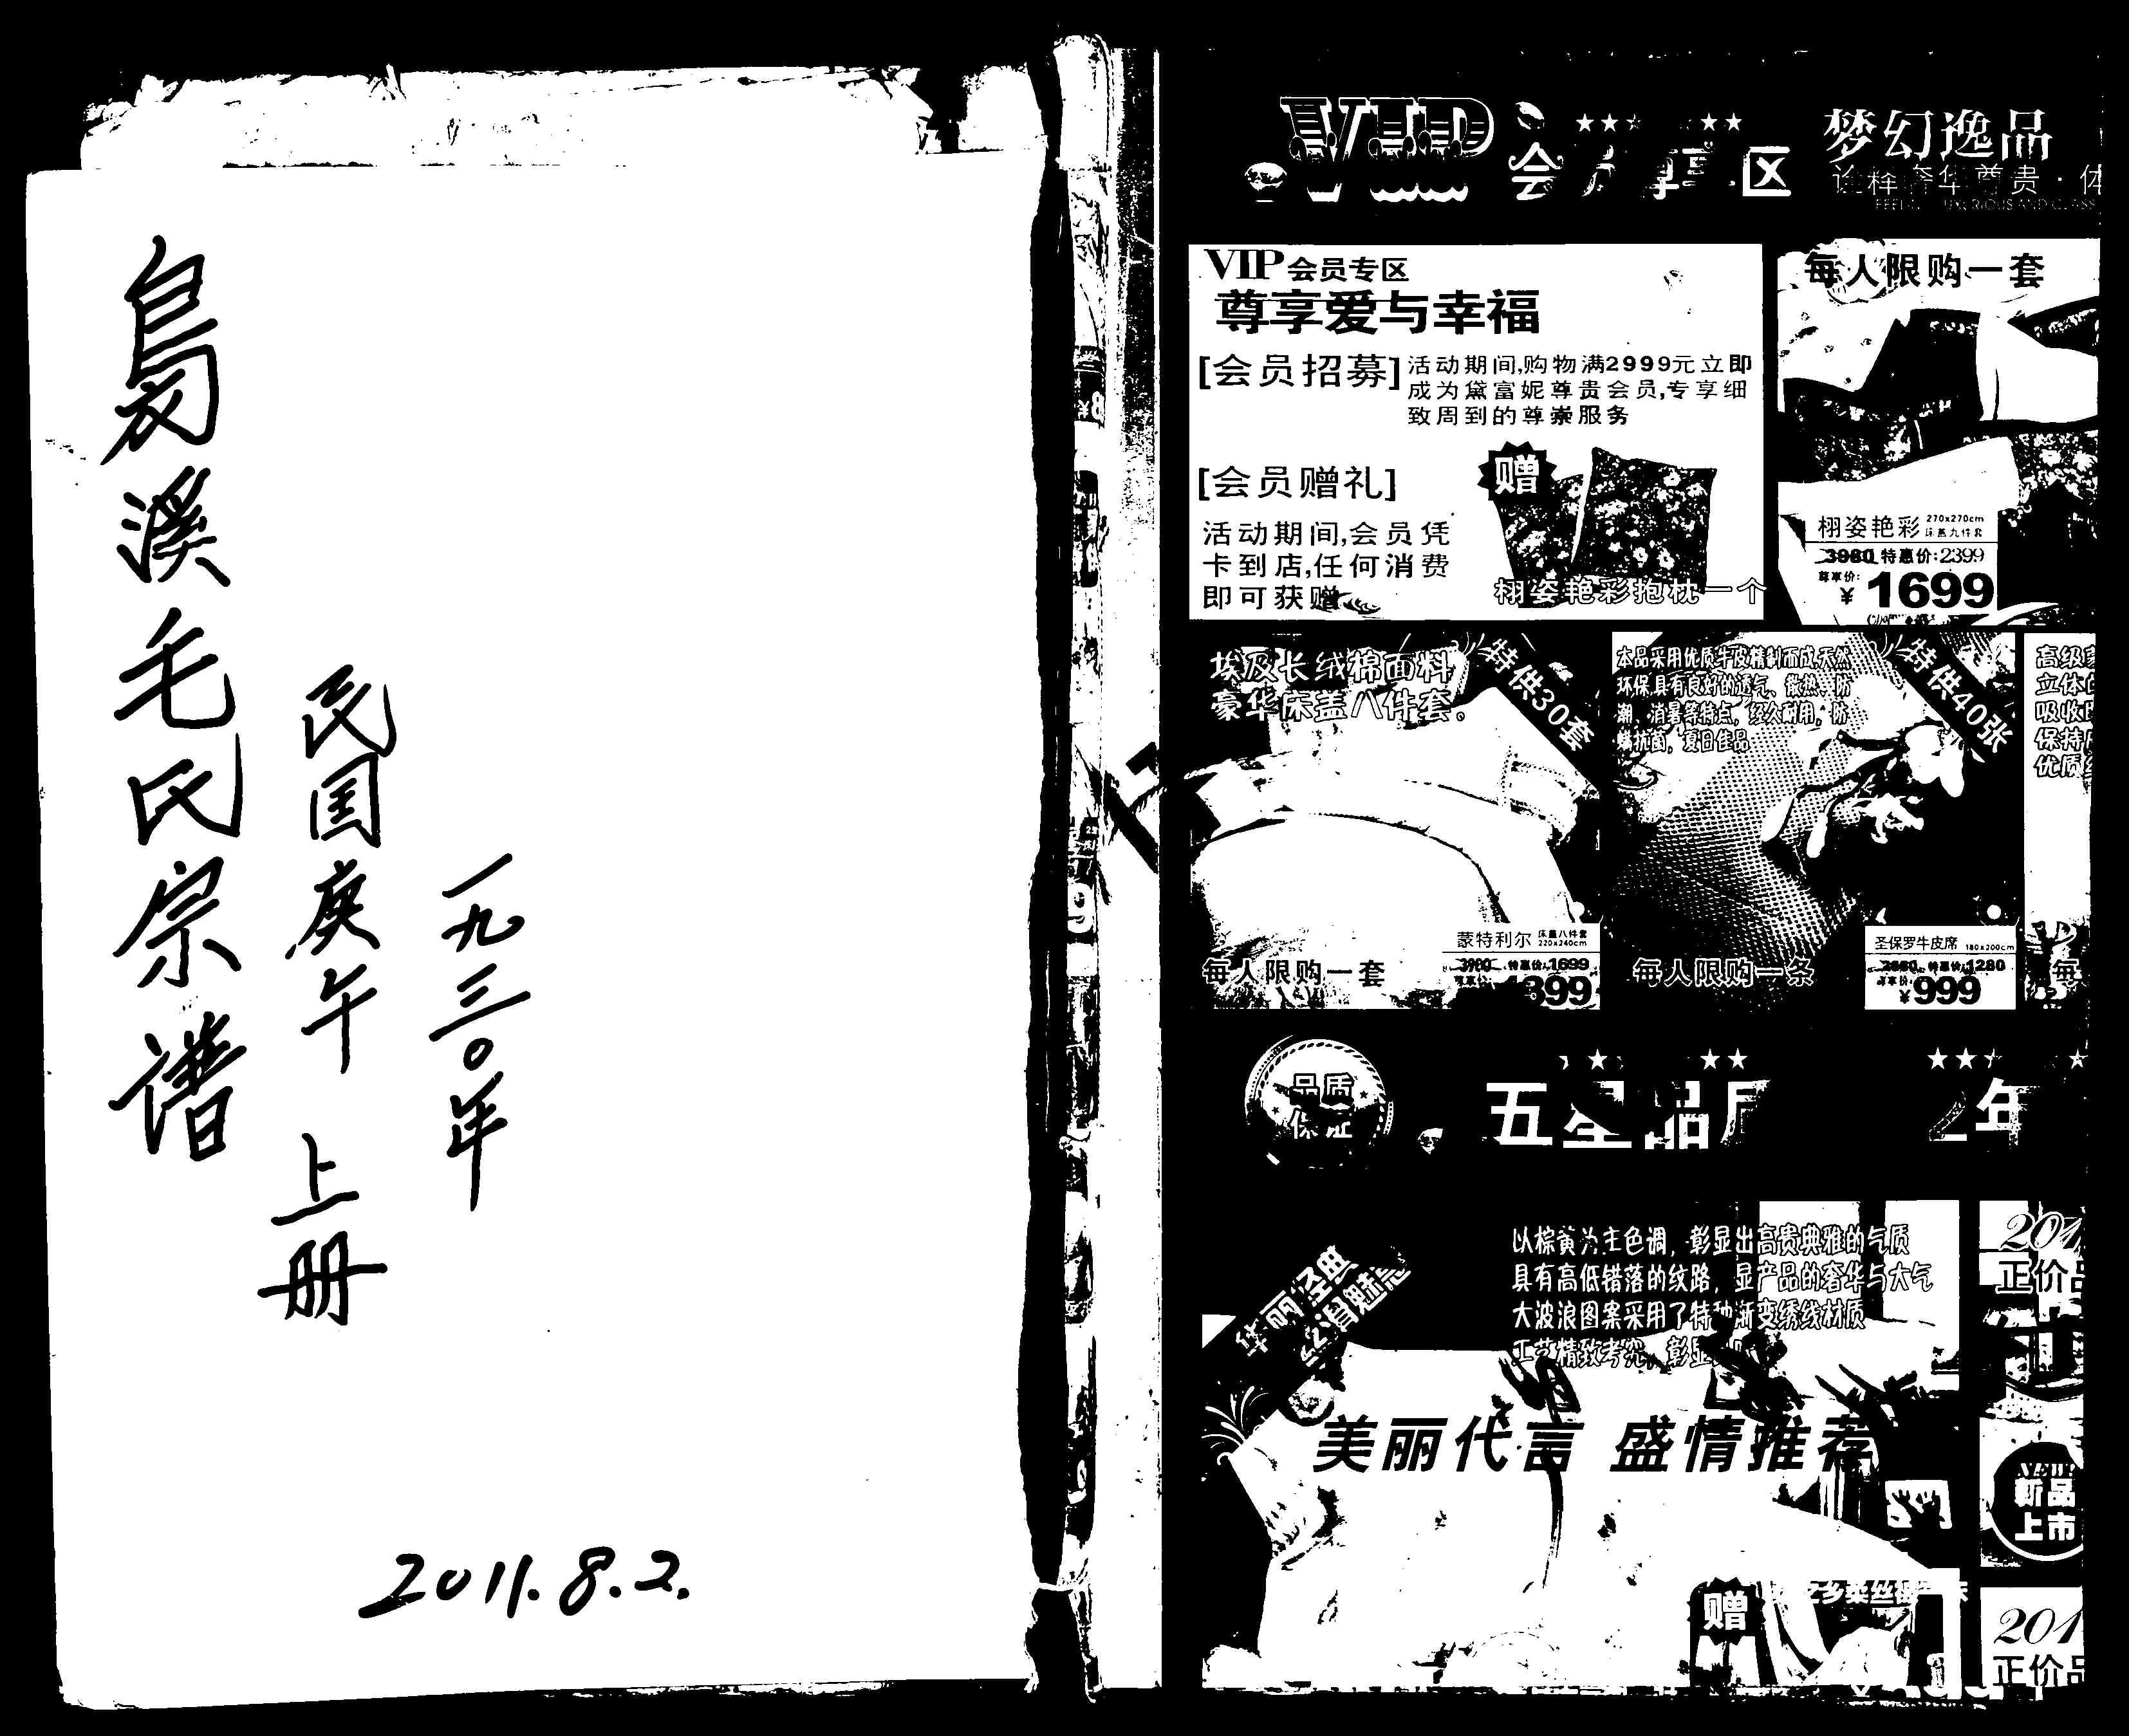 裊溪毛氏宗谱
民国庚午 上册
一九三〇年
2011.8.2.
VIP 会员尊享区
梦幻逸品
诠释奢华尊贵·体
VIP会员专区
尊享爱与幸福
[会员招募]
活动期间,购物满2999元立即
成为黛富妮尊贵会员,专享细
致周到的尊崇服务
[会员赠礼]
活动期间,会员凭
卡到店,任何消费
即可获赠
赠
栩姿艳彩抱枕一个
每人限购一套
栩姿艳彩 270x270cm 床盖九件套
3980 特惠价:2399
尊享价:
¥1699
埃及长绒棉面料
豪华床盖八件套。
特供30套
每人限购一套
蒙特利尔 床盖八件套 220x240cm
3980 特惠价:1699
399
本品采用优质牛皮精制而成,天然
环保,具有良好的透气、散热、防
潮、消暑等特点,经久耐用,防
螨抗菌,夏日佳品
特供40张
每人限购一条
圣保罗牛皮席 180x200cm
2680 特惠价:1280
尊享价:
¥999
高级
立体
吸收
保持
优质
每
品质
保证
五星品质
2年
华丽经典
浪漫魅惑
以棕黄为主色调,彰显出高贵典雅的气质
具有高低错落的纹路,显产品的奢华与大气
大波浪图案采用了特种渐变绣线材质
工艺精致考究,彰显
美丽代言 盛情推荐
赠
201
正价品
新品
上市
201
正价品